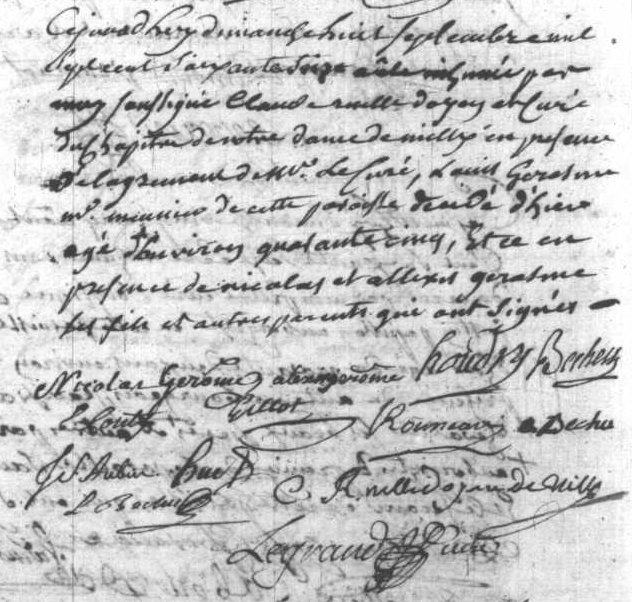 Cejourdhuy dimanche huit septembre mil
sept cent soixante seize a été inhumé par
moy soussigné Claude ruelle doyen et Curé
du Chapitre de notre dame de milly en presence
De lagrement de Mr. Le Curé, Louis Gerosme
mr. meunier de cette paroisse decedé d'hier
agé d'Environ quarante cinq, Et ce en
presence de nicolas et allexis gerosme
ses fils et autres parents qui ont signés
Nicolas Gerôme alexis gerôme houdry Bechu
Tillot Rommeau Bechu
C Ruelle doyen de milly
Legrand Curé